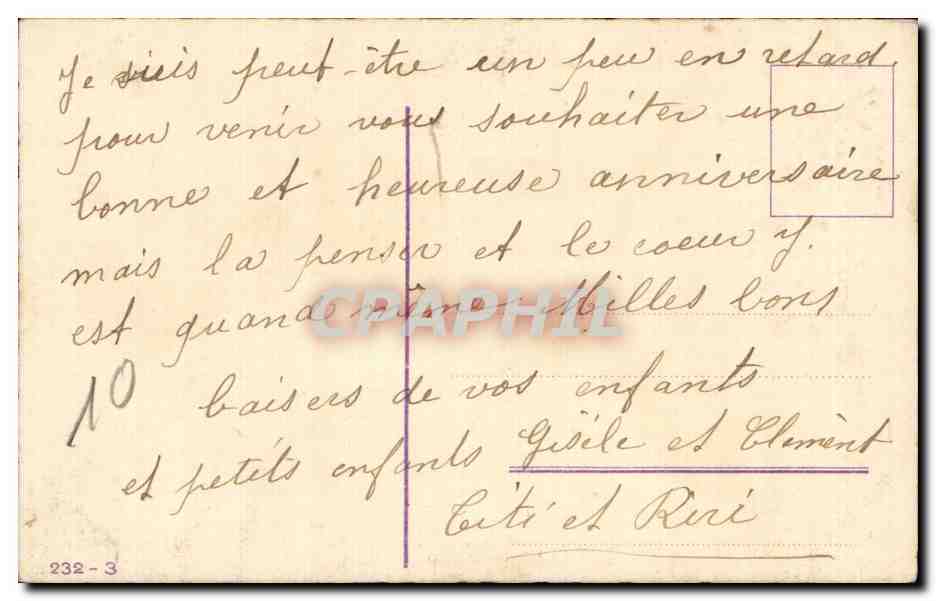 Je suis peut-être un peu en retard.
pour venir vous souhaiter une
bonne et heureuse anniversaire
mais la penser et le coeur y.
est quand même Milles bons
CPAPHIL
10 baisers de vos enfants
et petits enfants Gisèle et Clemènt
Titi et Riri
232-3